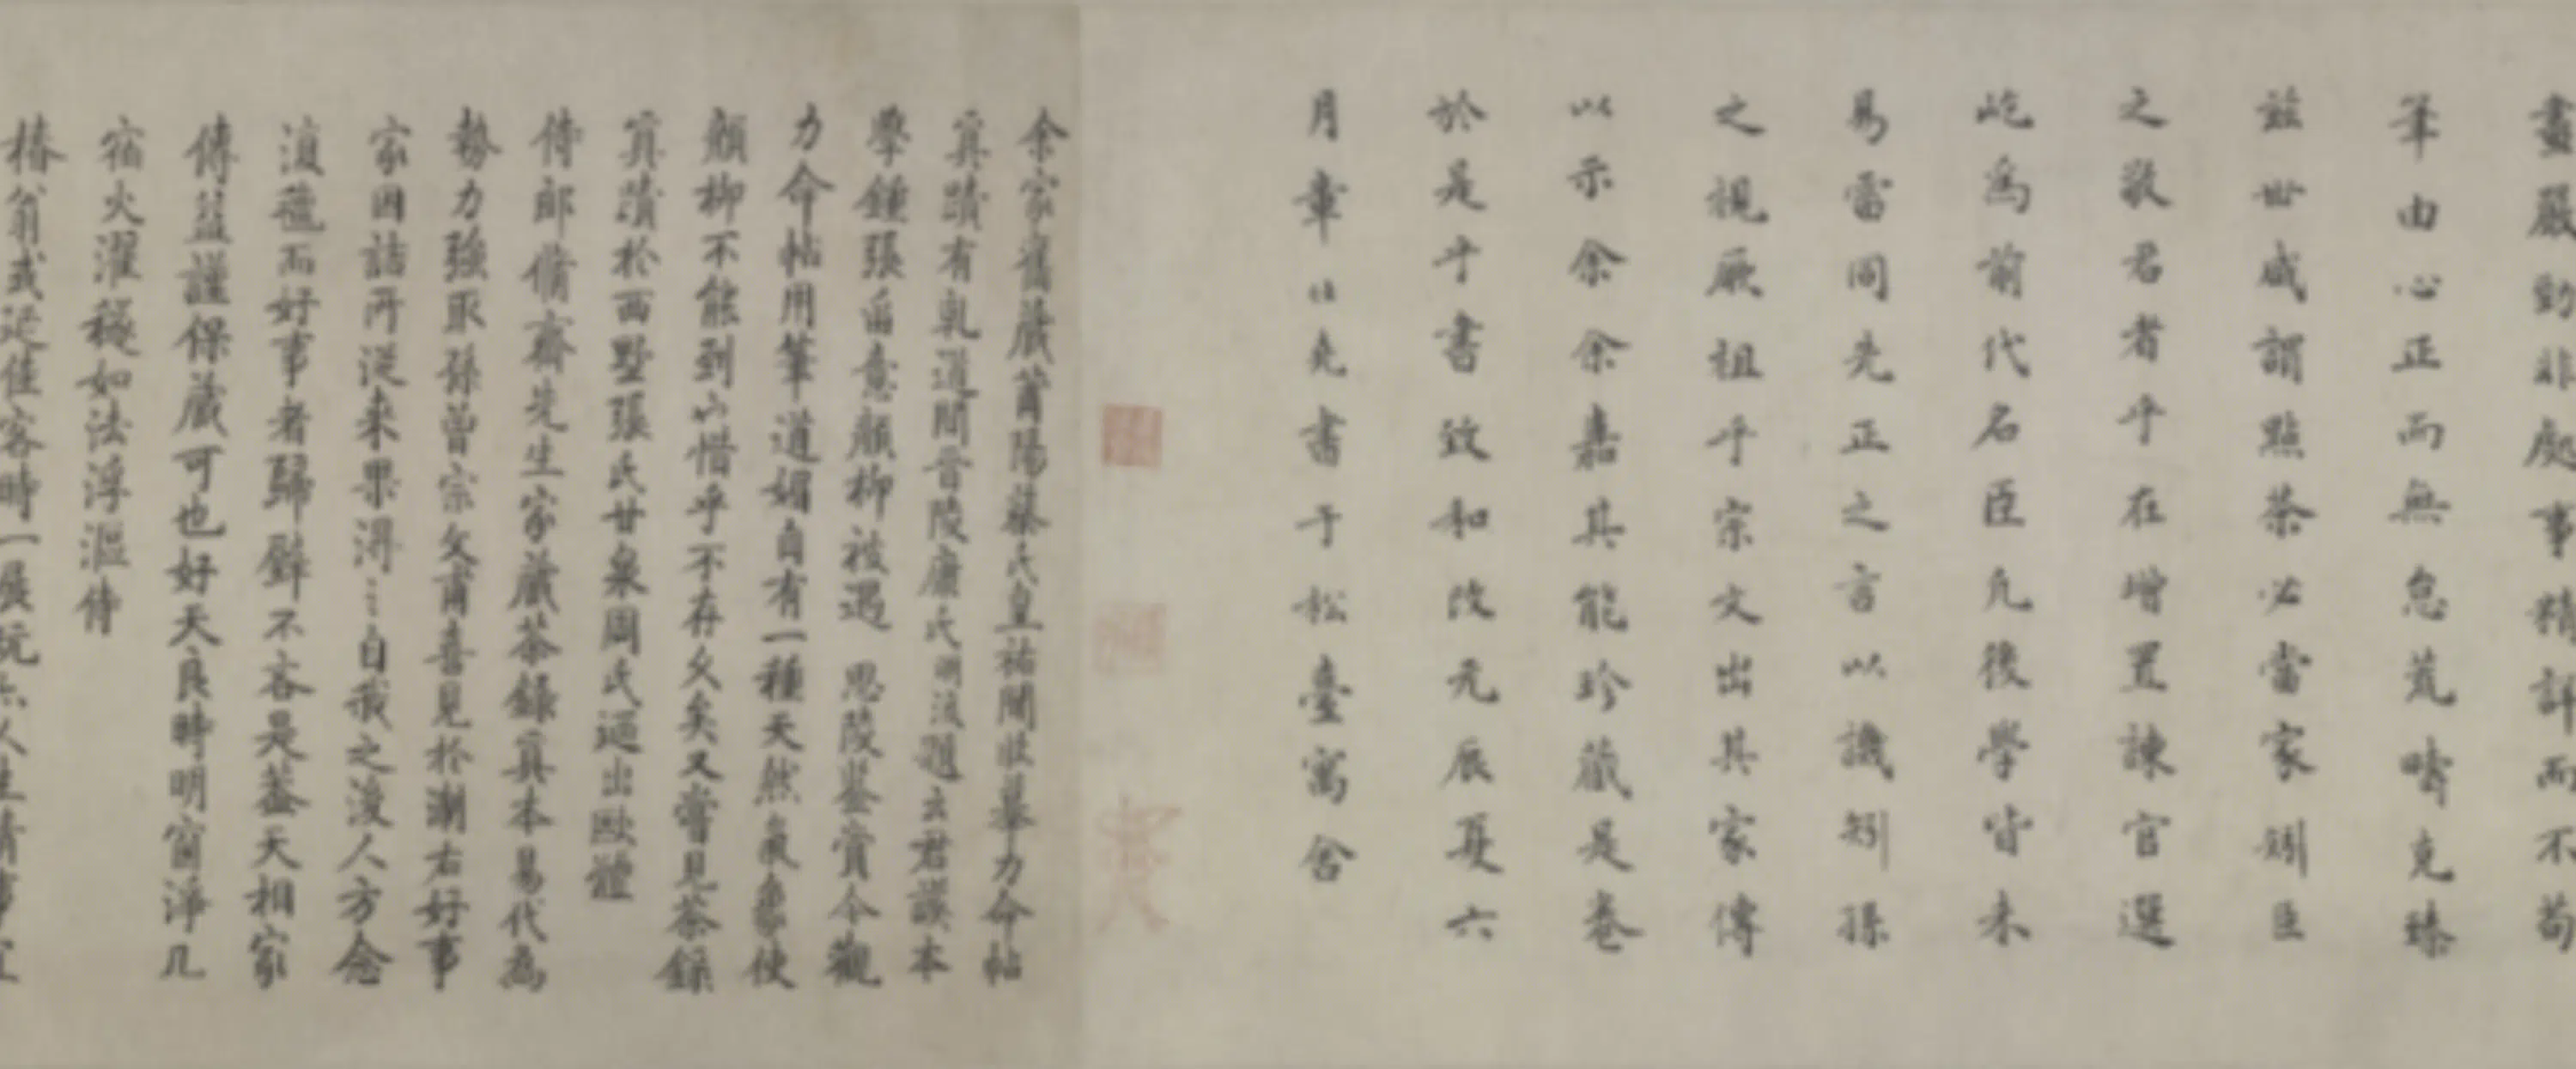 畫嚴勁非處事精詳而不苟
筆由心正而無怠荒疇克臻
茲世咸謂點茶必當家矧臣
之敬君者乎在增置諫官選
屹為前代名臣凡後學皆未
易雷同先正之言以譏矧孫
之視厥祖乎宗文出其家傳
以示余余嘉其能珍藏是卷
於是乎書致和改元辰夏六
月章仕堯書于松臺寓舍
余家舊藏莆陽蔡氏皇祐間壯摹力命帖
真蹟有乾道間晉陵唐氏 後題云君謨本
學鍾張 意顏柳被遇 思陵鑒賞今觀
力命帖用筆遒媚自有一種天然氣象使
顏柳不能到此惜乎不存久矣又嘗見茶錄
真蹟於西墅張氏廿泉周氏迺出歐體
侍郎脩齋先生家藏茶錄真本易代為
勢力強取孫曾宗文甫喜見於潮右好事
家因詰所從來果得之之自我之後人方念
復 而好事者歸辭不吝是蓋天相家
傳益謹保藏可也好天良時明窗淨几
宿火濯 如法浮漚待
椿翁或延佳客時一展玩 人生清事